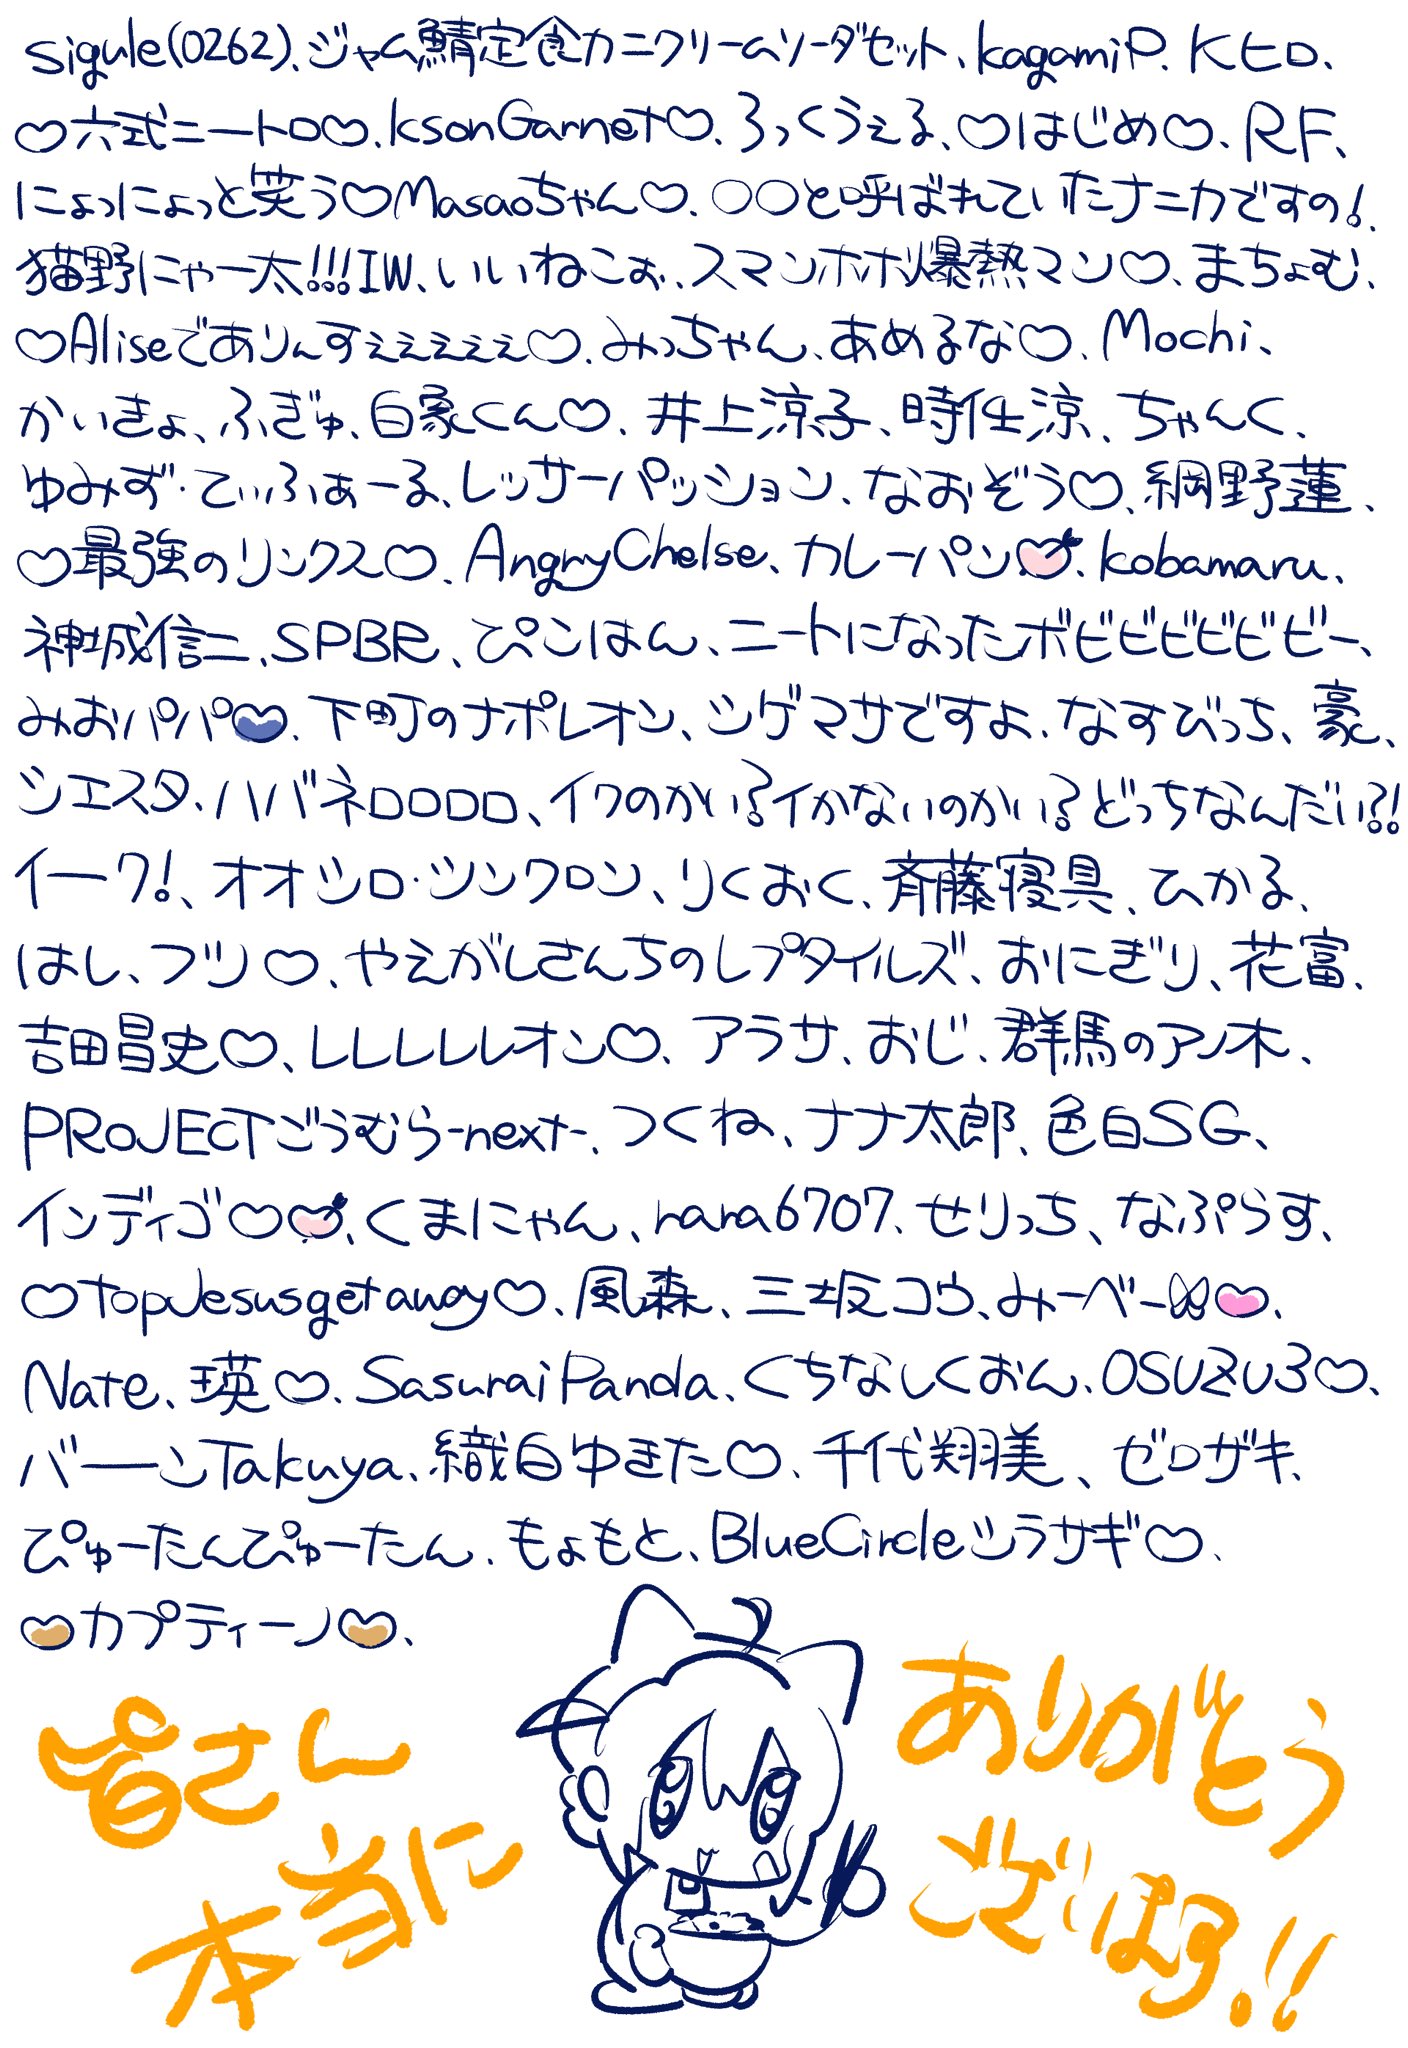 sigule(0262)、ジャム鯖定食カニクリームソーダセット、kagamiP、Kヒロ、
♡六式ニートロ♡、ksonGarnet♡、ろっくうぇる、♡はじめ♡、RF、
にょっにょっと笑う♡Masaoちゃん♡、○○と呼ばれていたナニカですの!、
猫野にゃー太!!!IW、いいねこぉ、スマンホホ爆熱マン♡、まちょむ、
♡Aliseでありんすぇぇぇぇぇ♡、みっちゃん、あめるな♡、Mochi、
かいきょ、ふぎゅ、白象くん♡、井上涼子、時任涼、ちゃんく、
ゆみず・てぃふぁーる、レッサーパッション、なおぞう♡、綱野蓮、
♡最強のリンクス♡、AngryChelse、カレーパン💘、kobamaru、
神城信二、SPBR、ぴこはん、ニートになったボビビビビビー、
みおパパ💙、下町のナポレオン、シゲマサですよ、なすびっち、豪、
シエスタ、ハバネロロロロ、イクのかい?イかないのかい?どっちなんだい?!
イーク!、オオシロ・シンクロン、りくおく、斉藤寝具、ひかる、
はし、フツノ♡、やえがしさんちのレプタイルズ、おにぎり、花富、
吉田昌史♡、レレレレレオン♡、アラサ、おじ、群馬のアノ木、
PROJECTごうむら-next-、つくね、ナナ太郎、色白SG、
インディゴ♡💘、くまにゃん、nana6707、せりっち、なぷらす、
♡TopJesusgetaway♡、風森、三坂コウ、みーべー🩷、
Nate、瑛♡、SasuraiPanda、くちなしくおん、OSUZU3♡、
バーーンTakuya、織白ゆきた♡、千代翔美、ゼロザキ、
ぴゅーたんぴゅーたん、もょもと、BlueCircleシラサギ♡、
♡カプティーノ♡、
皆さん
本当に
ありがとう
ございます!!